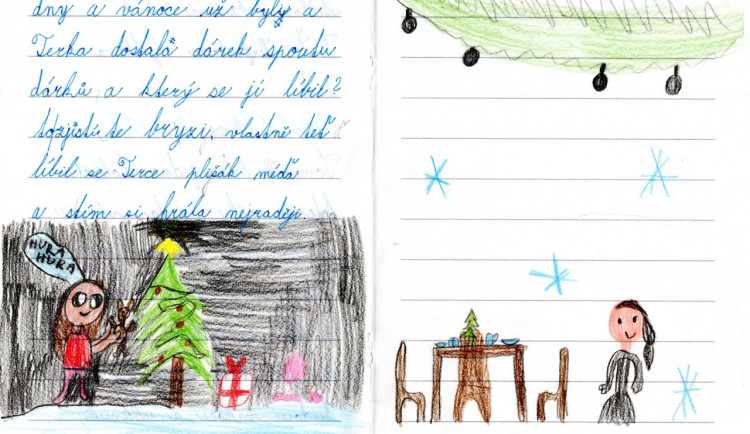 dny a vánoce už byly a
Terka dostala dárek spoutu
dárků a který se jí líbil?
to zjistíte bryzi, vlastně teť
líbil se Terce plišák méďa
a stím si hrála nejraději.
HURA
HURA